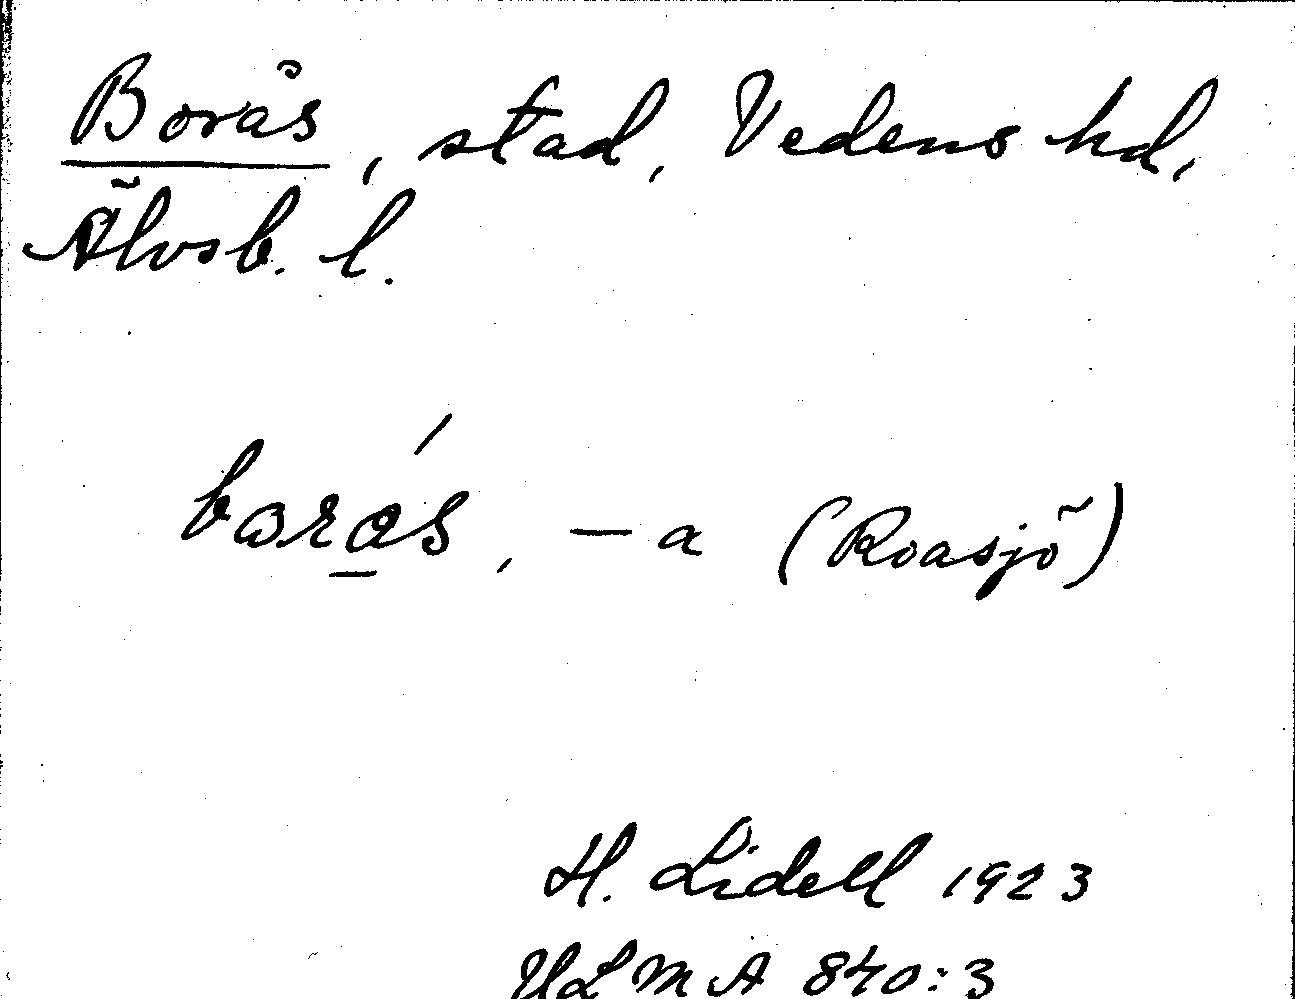 Borås, stad, Vedens hd,
Älvsb. l.
barǻs, – a (Roasjö)
H. Lidell 1923
ULMA 840:3